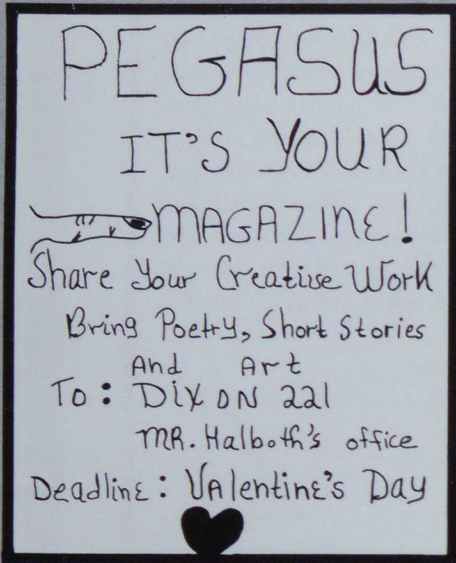 PEGASUS
IT'S YOUR
MAGAZINE!
Share Your Creative Work
Bring Poetry, Short Stories
And Art
To: DIXON 221
MR. Halboth's office
Deadline: VAlentine's Day